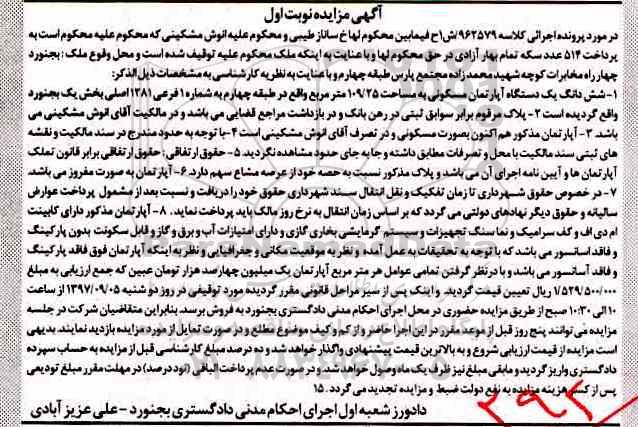 آگهی مزایده نوبت اول
در مورد پرونده اجرائی کلاسه ۹۶۲۵۷۹/ش/۱ح فیمابین محکوم لها خ ساناز طیبی و محکوم علیه انوش مشکینی که محکوم علیه محکوم است به
پرداخت ۵۱۴ عدد سکه تمام بهار آزادی در حق محکوم لها و با عنایت به اینکه ملک محکوم علیه توقیف شده است و محل وقوع ملک : بجنورد
چهار راه مخابرات کوچه شهید محمدزاده مجتمع پارس طبقه چهارم و با عنایت به نظریه کارشناسی به مشخصات ذیل الذکر:
۱- شش دانگ یک دستگاه آپارتمان مسکونی به مساحت ۱۰۹/۲۵ متر مربع واقع در طبقه چهارم به شماره ۱ فرعی ۱۲۸۱ اصلی بخش یک بجنورد
واقع گردیده است ۲- پلاک مرقوم برابر سوابق ثبتی در رهن بانک و در بازداشت مراجع قضایی می باشد و در مالکیت آقای انوش مشکینی می
باشد. ۳- آپارتمان مذکور هم اکنون بصورت مسکونی و در تصرف آقای انوش مشکینی است ۴- با توجه به حدود مندرج در سند مالکیت و نقشه
های ثبتی سند مالکیت با محل و تصرفات مطابق داشته و جا به جای حدود مشاهده نگردید. ۵- حقوق ارتفاقی : حقوق ارتفاقی برابر قانون تملک
آپارتمان ها و آیین نامه اجرای آن می باشد و پلاک مذکور نسبت به حصه خود از عرصه مشاع سهم دارد. ۶- آپارتمان به صورت مفروز می باشد
۷- در خصوص حقوق شهرداری تا زمان تفکیک و نقل انتقال سند شهرداری حقوق خود را دریافت و نسبت بعد از مشمول پرداخت عوارض
سالیانه و حقوق دیگر نهادهای دولتی می گردد که بر اساس زمان انتقال به نرخ روز مالک باید پرداخت نماید. ۸- آپارتمان مذکور دارای کابینت
ام دی اف و کف سرامیک و نما سنگ تجهیزات و سیستم گرمایشی بخاری گازی و دارای امتیازات آب و برق و گاز و قابل سکونت بدون پارکینگ
و فاقد اسانسور می باشد که با توجه به تحقیقات به عمل آمده و نظر به موقعیت مکانی و جغرافیایی و نظر به اینکه آپارتمان فوق فاقد پارکینگ
و فاقد آسانسور می باشد و با در نظر گرفتن تمامی عوامل هر متر مربع آپارتمان یک میلیون چهارصد هزار تومان عیین که جمع ارزیابی به مبلغ
۱/۵۲۹/۵۰۰/۰۰۰ ریال تعیین قیمت گردید. و اینک پس از سیر مراحل قانونی مقرر گردیده مورد توقیفی در روز دو شنبه ۱۳۹۷/۰۹/۰۵ از ساعت
۱۰ الی ۱۰:۳۰ صبح از طریق مزایده حضوری در محل اجرای احکام مدنی دادگستری بجنورد به فروش برسد. بنابراین متقاضیان شرکت در جلسه
مزایده می توانند پنج روز قبل از موعد مقرر در این اجرا حاضر و از کم و کیف موضوع مطلع و در صورت تمایل از مورد مزایده بازدید نمایند. بدیهی
است مزایده از قیمت ارزیابی شروع و به بالاترین قیمت پیشنهادی واگذار خواهد شد و ده درصد مبلغ کارشناسی قبل از مزایده به حساب سپرده
دادگستری واریز گردید و مابقی مبلغ نیز ظرف یک ماه وصول خواهد شد و در صورت عدم پرداخت الباقی (نود درصد) در مهلت مقرر مبلغ تودیعی
پس از کسر هزینه مزایده به نفع دولت ضبط و مزایده تجدید می گردد. ۱۵
دادورز شعبه اول اجرای احکام مدنی دادگستری بجنورد - علی عزیز آبادی